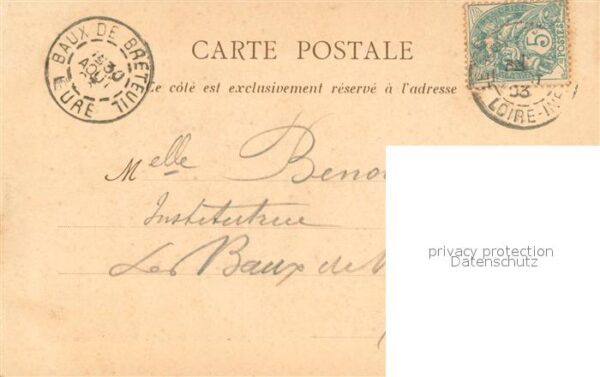 BAUX DE BRETEUIL
30
AOUT
EURE
CARTE POSTALE
Ce côté est exclusivement réservé à l'adresse
5c
03
LOIRE-INF
Melle Beno
Institutrice
Les Baux de
privacy protection
Datenschutz